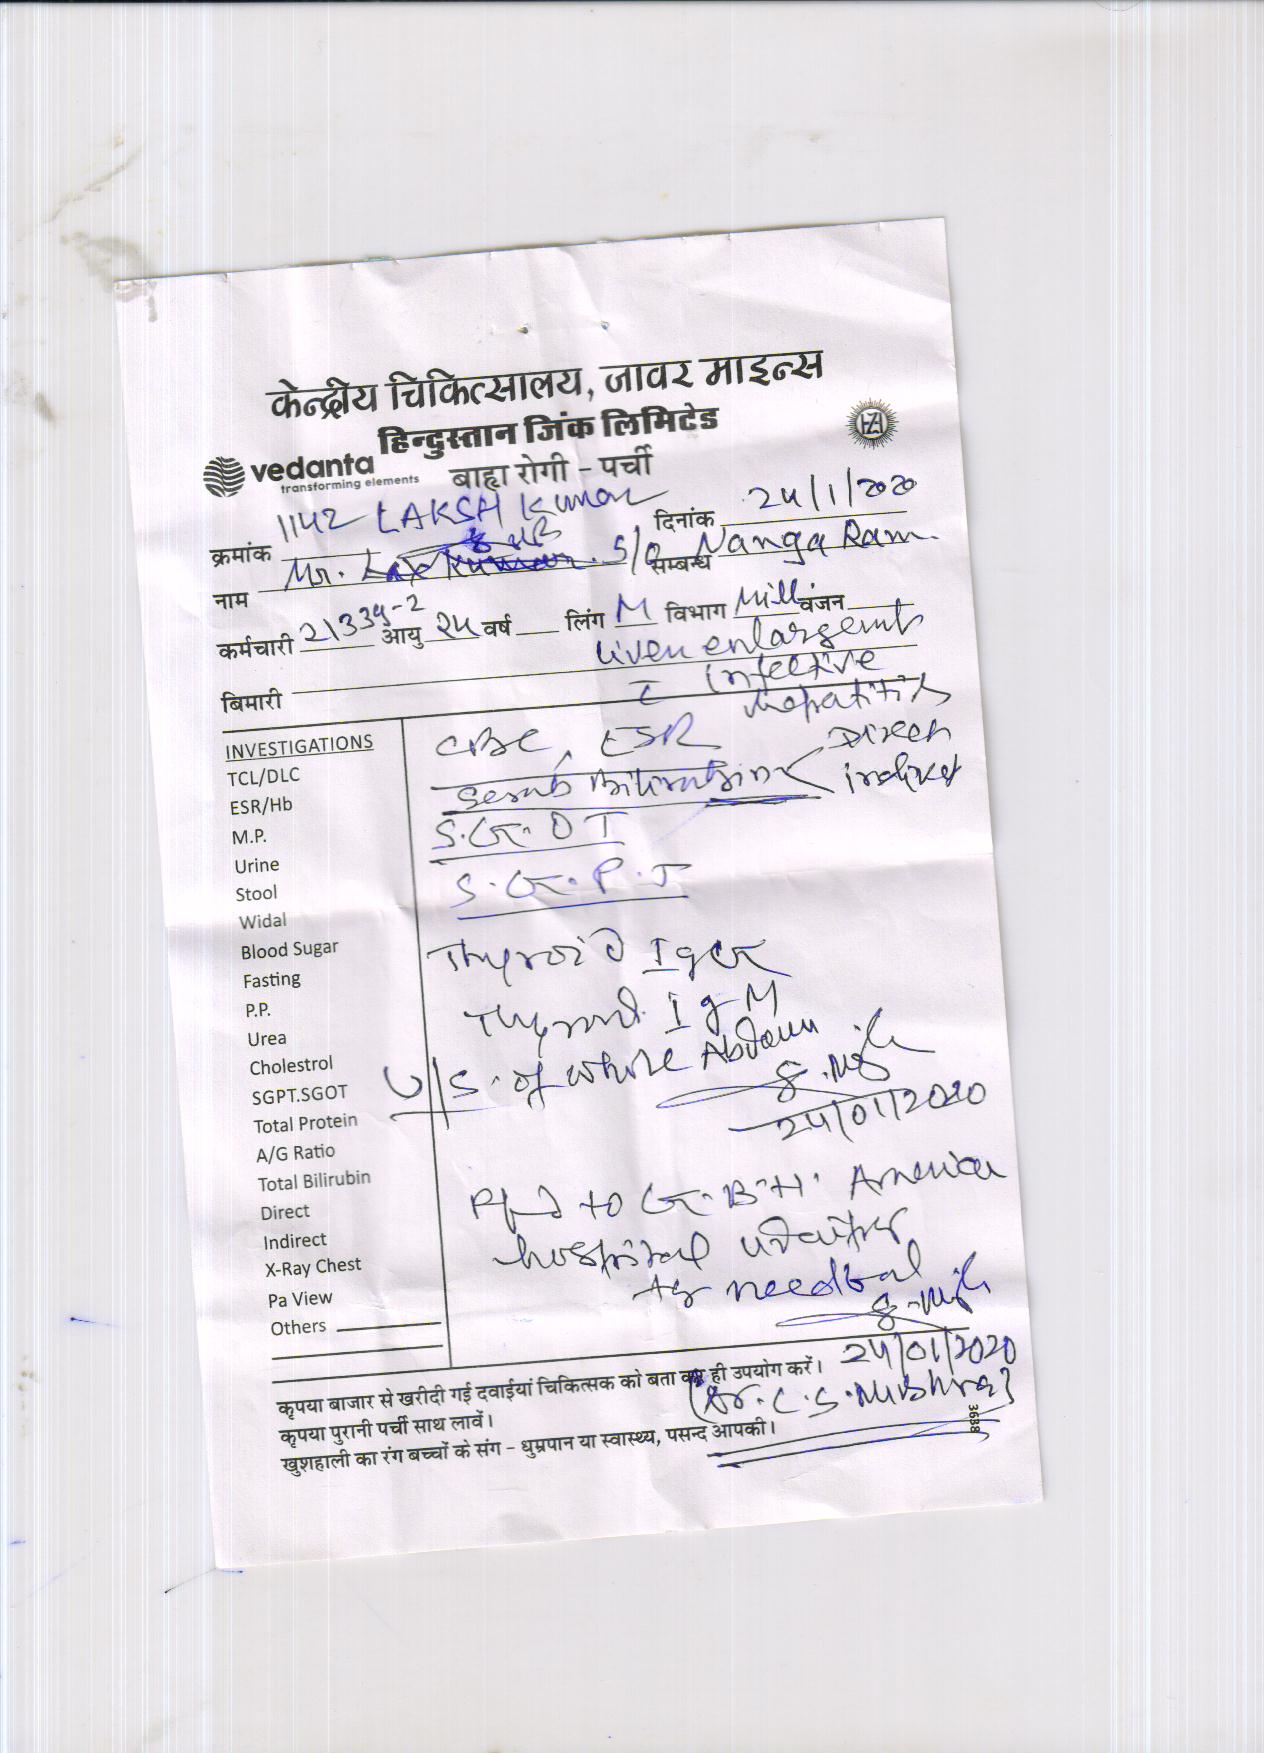 केन्द्रीय चिकित्सालय, जावर माइन्स
हिन्दुस्तान जिंक लिमिटेड
vedanta
transforming elements
बाह्य रोगी – पर्ची
क्रमांक 1142 LAKSH Kumar दिनांक 24/1/2020
नाम Mr. S/o सम्बन्ध Nanga Ram
कर्मचारी 21339-2 आयु 24 वर्ष लिंग M विभाग Mill वंजन
बिमारी Liver enlargemt
c̄ Infective
hepatitis
INVESTIGATIONS
TCL/DLC
ESR/Hb
M.P.
Urine
Stool
Widal
Blood Sugar
Fasting
P.P.
Urea
Cholestrol
SGPT.SGOT
Total Protein
A/G Ratio
Total Bilirubin
Direct
Indirect
X-Ray Chest
Pa View
Others
CBC, ESR
Direct
Indirect
S.G.O T
S.G.P.T
Thyroid IgG
IgM
U/S. of whole Abdomen
24/01/2020
to G.B.H. American
hospital
As needful
24/01/2020
(Dr. C.S. Mishra)
कृपया बाजार से खरीदी गई दवाईयां चिकित्सक को बता कर ही उपयोग करें।
कृपया पुरानी पर्ची साथ लावें।
खुशहाली का रंग बच्चों के संग – धुम्रपान या स्वास्थ्य, पसन्द आपकी।
3638